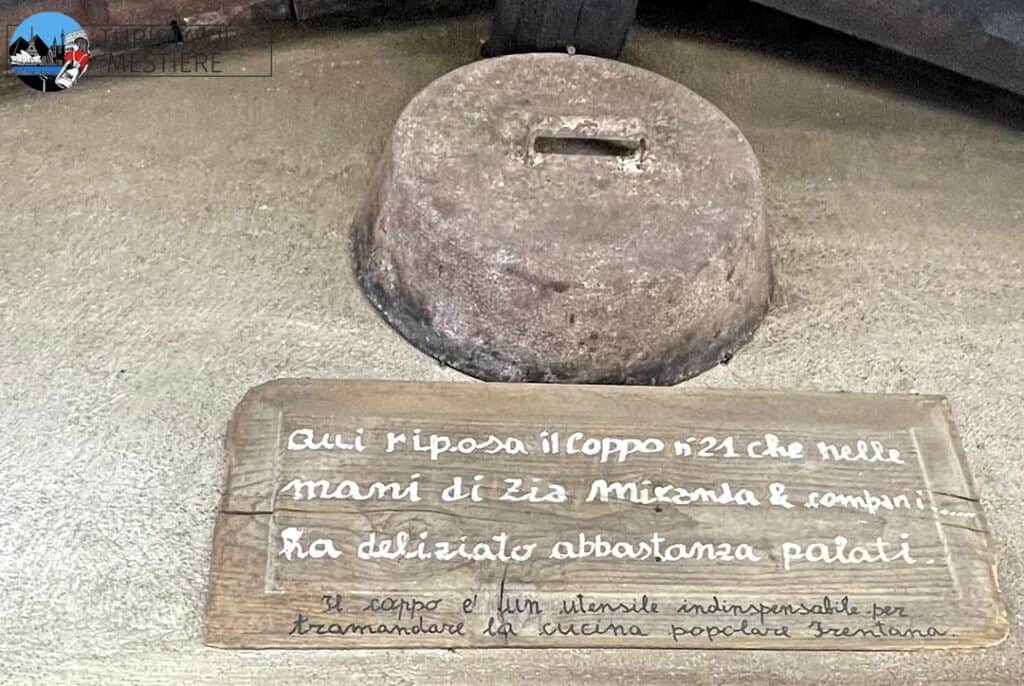 TURISTA DI
MESTIERE
Qui riposa il Coppo n°21 che nelle
mani di Zia Miranda & compani.....
ha deliziato abbastanza palati.
Il coppo e' un utensile indinspensabile per
tramandare la cucina popolare Frentana.